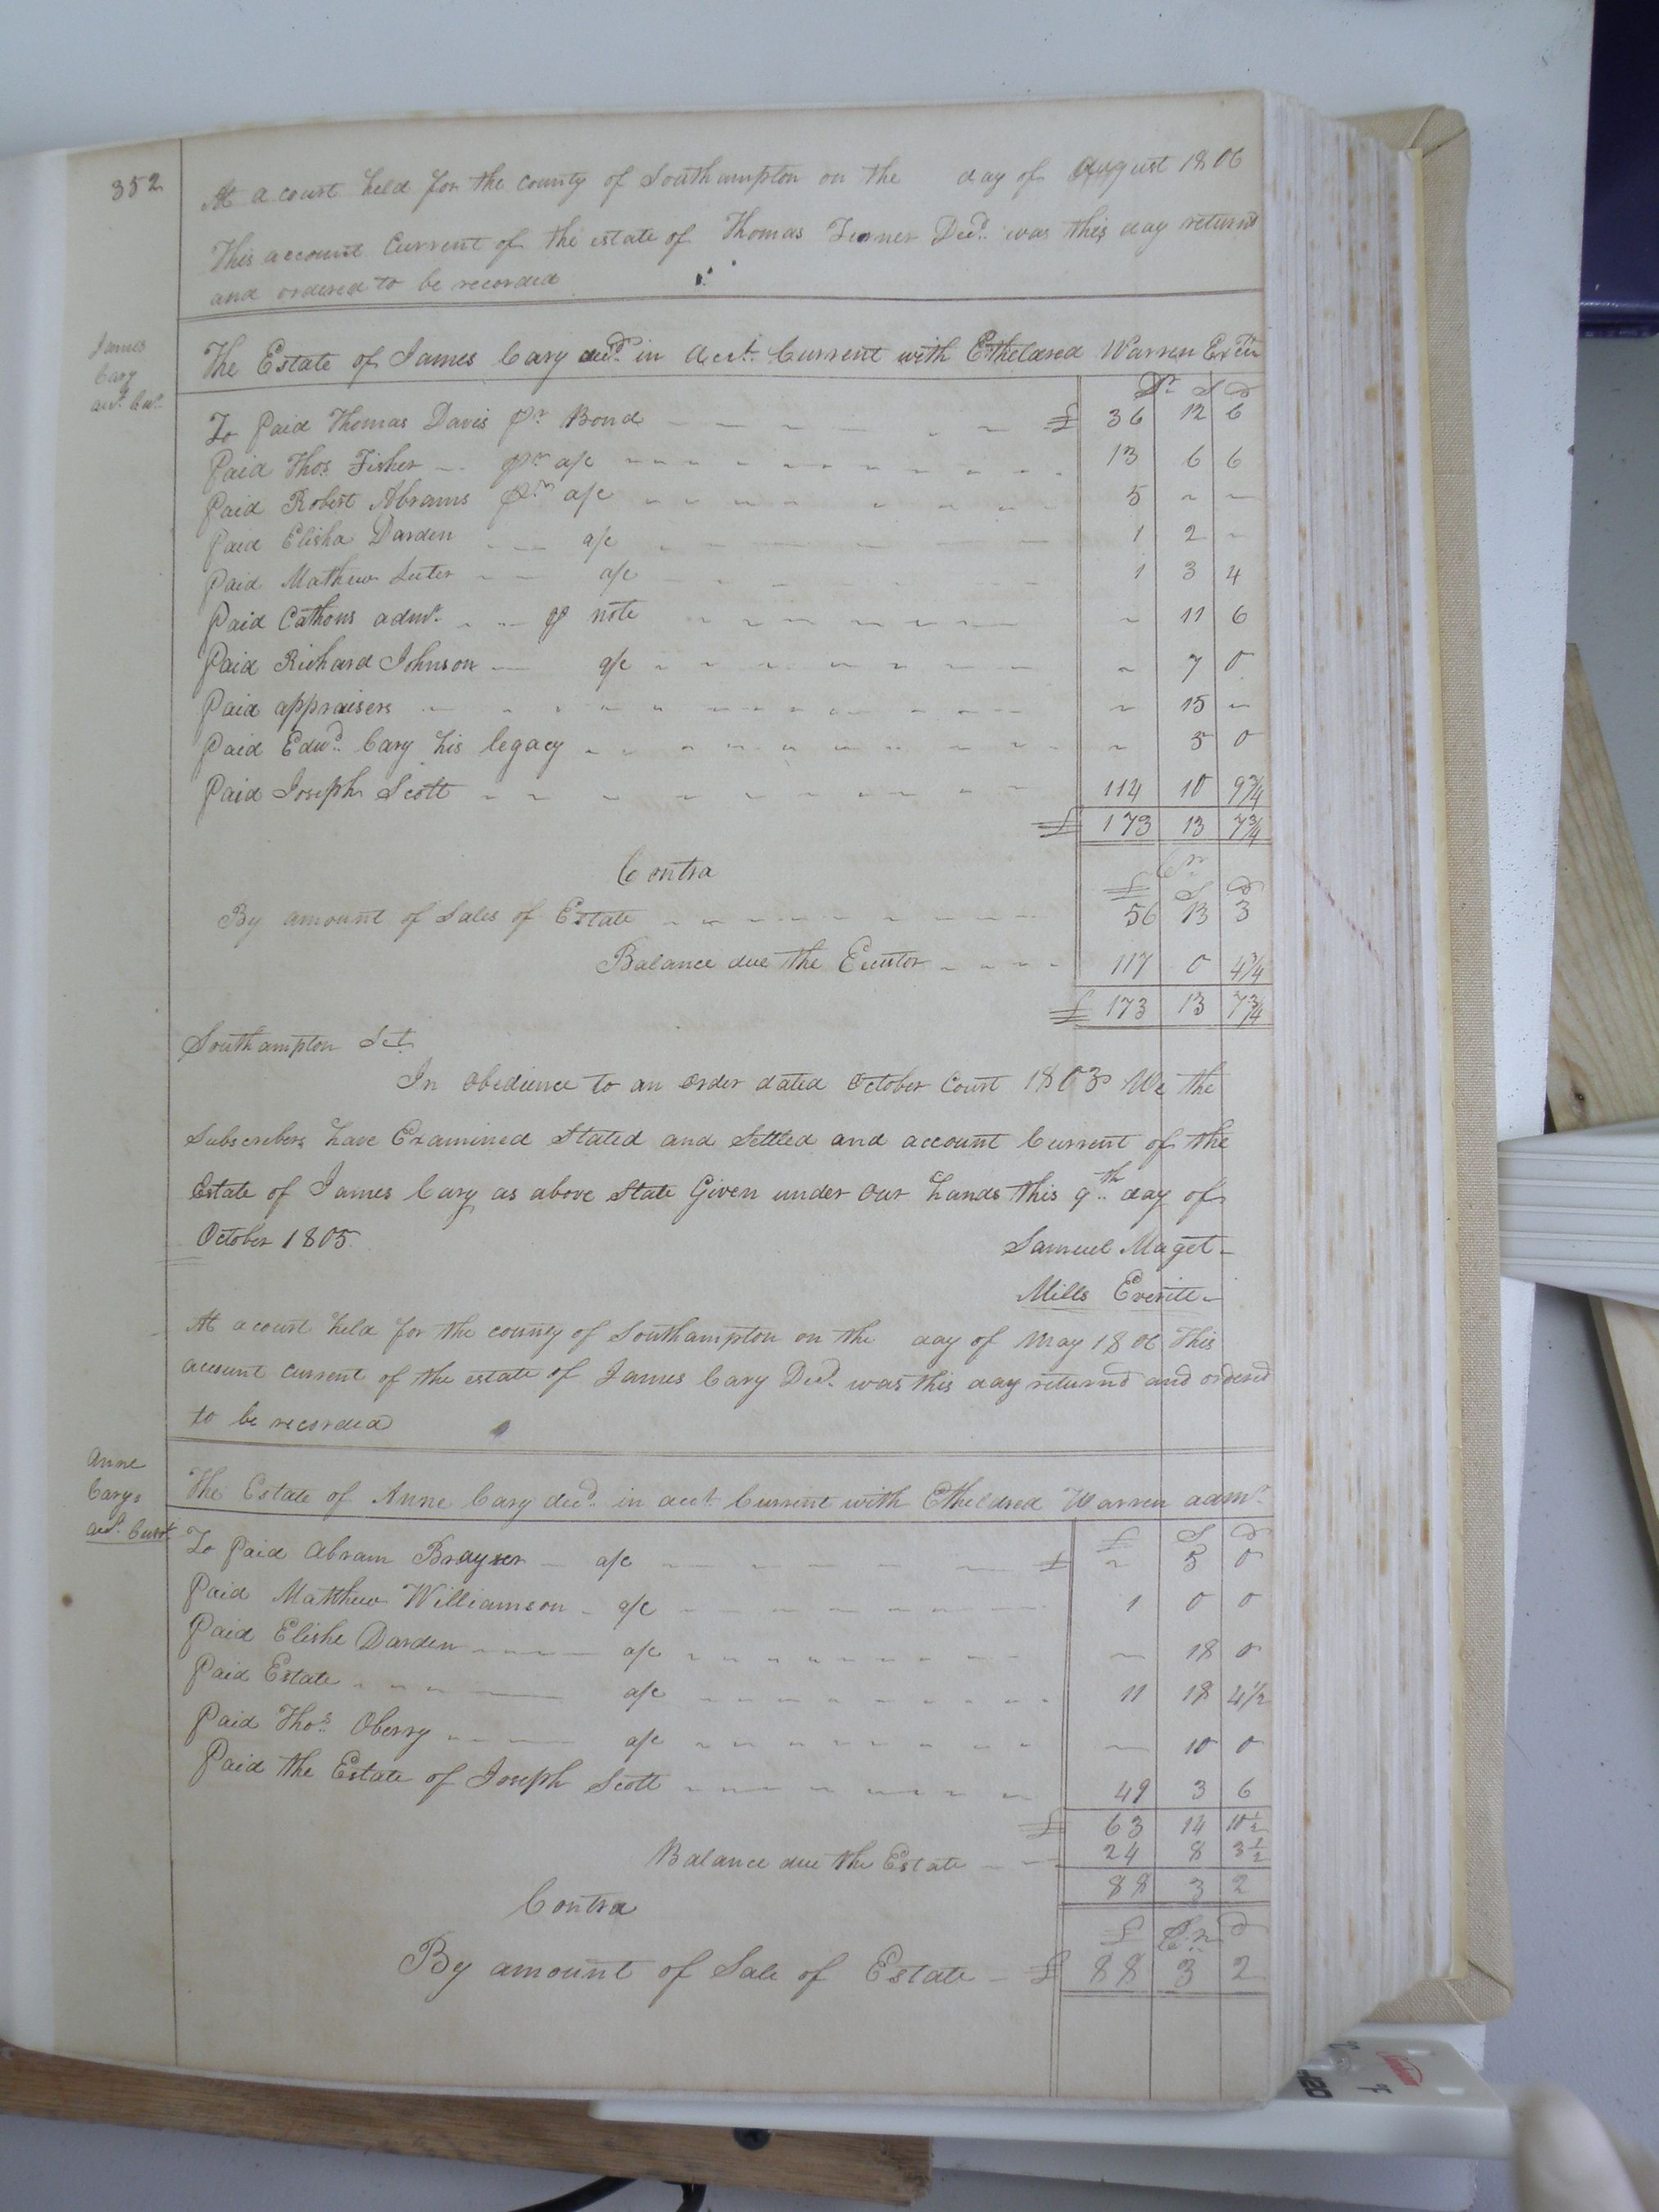 352
At a court held for the county of Southampton on the day of August 1806
This account Current of the estate of Thomas Turner Decd. was this day returnd
and ordered to be recorded
James
Cary
act. Curt.
The Estate of James Cary decd. in Acct. Current with Etheldred Warren Exctr
Dr S D
To Paid Thomas Davis Pr Bond £ 36 12 6
Paid Thos. Fisher pr a/c 13 6 6
Paid Robert Abrams pr a/c 5 ~ ~
Paid Elisha Darden a/c 1 2 ~
Paid Mathew Luter a/c 1 3 4
Paid Cathons admr. p note ~ 11 6
Paid Richard Johnson a/c ~ 7 0
Paid appraisers ~ 15 ~
Paid Edwd. Cary his legacy ~ 5 0
Paid Joseph Scott 114 10 9¾
£ 173 13 7¾
Contra Cr
£ S D
By amount of Sales of Estate 56 13 3
Balance due the Exeutor 117 0 4¾
£ 173 13 7¾
Southampton Sct.
In Obedience to an Order dated October Court 1803 We the
Subscribers have Examined Stated and Settled and account Current of the
Estate of James Cary as above State Given under Our hands this 9th day of
October 1805
Samuel Maget
Mills Everitt
At a court held for the county of Southampton on the day of May 1806 This
account current of the estate of James Cary Decd. was this day returnd and ordered
to be recorded
Anne
Carys
act. Curt.
The Estate of Anne Cary decd. in acct. Current with Etheldred Warren admr.
£ S D
To Paid Abram Brayser a/c £ ~ 5 0
Paid Matthew Williamson a/c 1 0 0
Paid Elishe Darden a/c ~ 18 0
Paid Estate a/c 11 18 4½
Paid Thos. Oberry a/c ~ 10 0
Paid the Estate of Joseph Scott 49 3 6
£ 63 14 10½
Balance due the Estate 24 8 3½
88 3 2
Contra
£ Cr D
By amount of Sale of Estate £ 88 3 2
420
°F